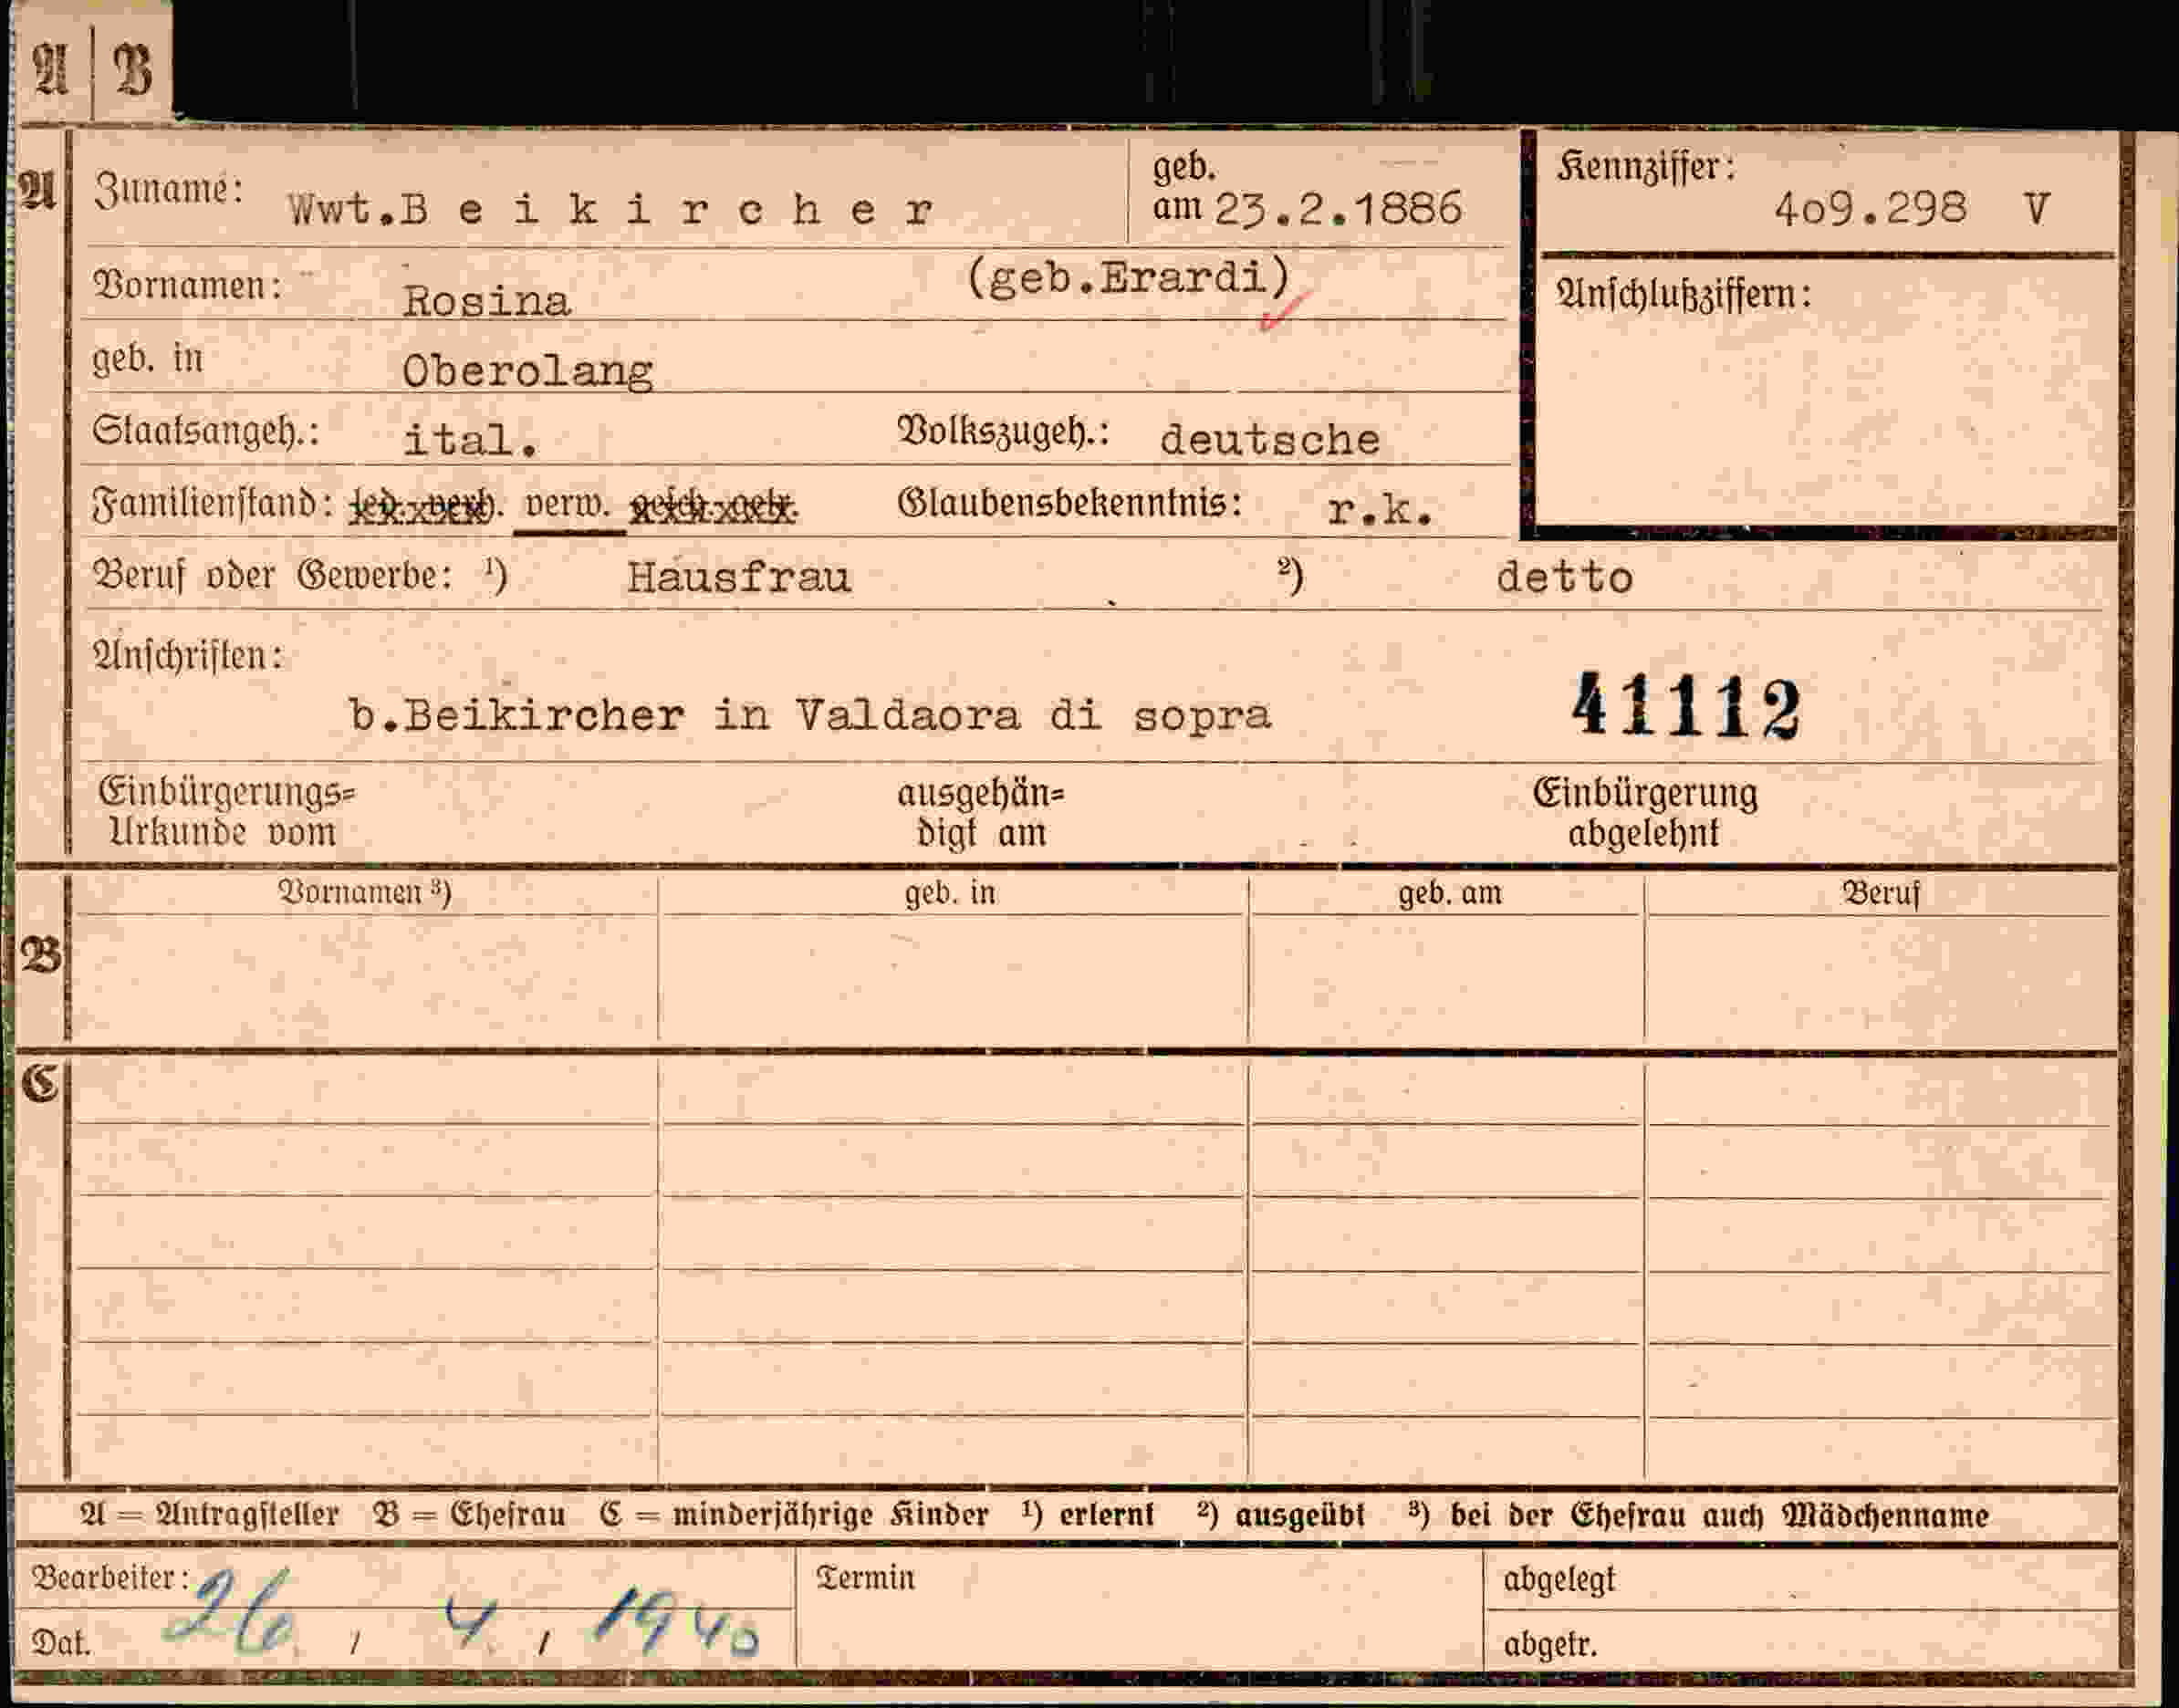 A | B
A
Zuname: Wwt.B e i k i r c h e r
geb. am 23.2.1886
Kennziffer: 4o9.298 V
Vornamen: Rosina (geb.Erardi)
Anschlußziffern:
geb. in Oberolang
Staatsangeh.: ital. Volkszugeh.: deutsche
Familienstand: led. verh. verw. gesch. getr. Glaubensbekenntnis: r.k.
Beruf oder Gewerbe: ¹) Hausfrau ²) detto
Anschriften:
b.Beikircher in Valdaora di sopra 41112
Einbürgerungs= ausgehän= Einbürgerung
Urkunde vom digt am abgelehnt
Vornamen ³) geb. in geb. am Beruf
B
C
A = Antragsteller B = Ehefrau C = minderjährige Kinder ¹) erlernt ²) ausgeübt ³) bei der Ehefrau auch Mädchenname
Bearbeiter: Termin abgelegt
Dat. 26. / 4. / 1940 abgetr.